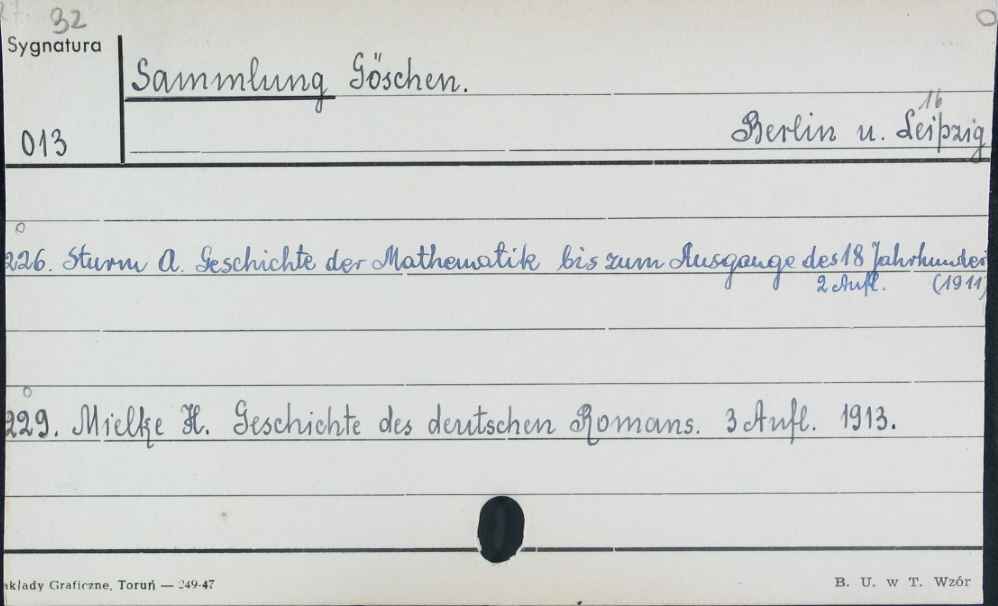 32
Sygnatura
Sammlung Göschen.
16
013
Berlin u. Leipzig
226. Sturm A. Geschichte der Mathematik bis zum Ausgange des 18 Jahrhunder
2 Aufl. (1911)
229. Mielke H. Geschichte des deutschen Romans. 3 Aufl. 1913.
akłady Graficzne, Toruń — 249-47
B. U. w T. Wzór